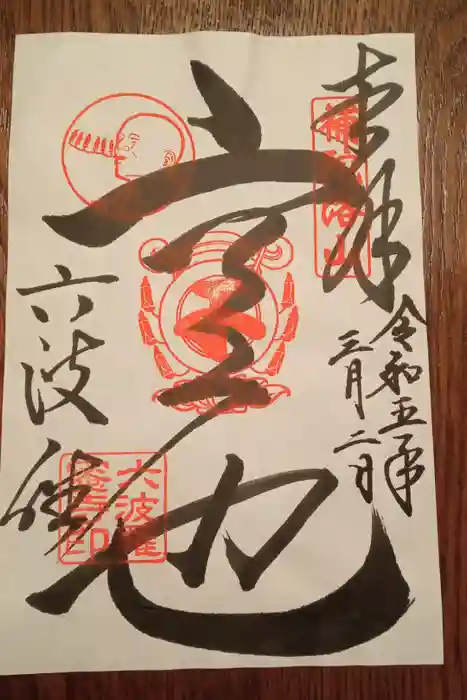 奉拝
補陀洛山
令和五年
三月二日
空也
六波
六波羅
蜜寺印